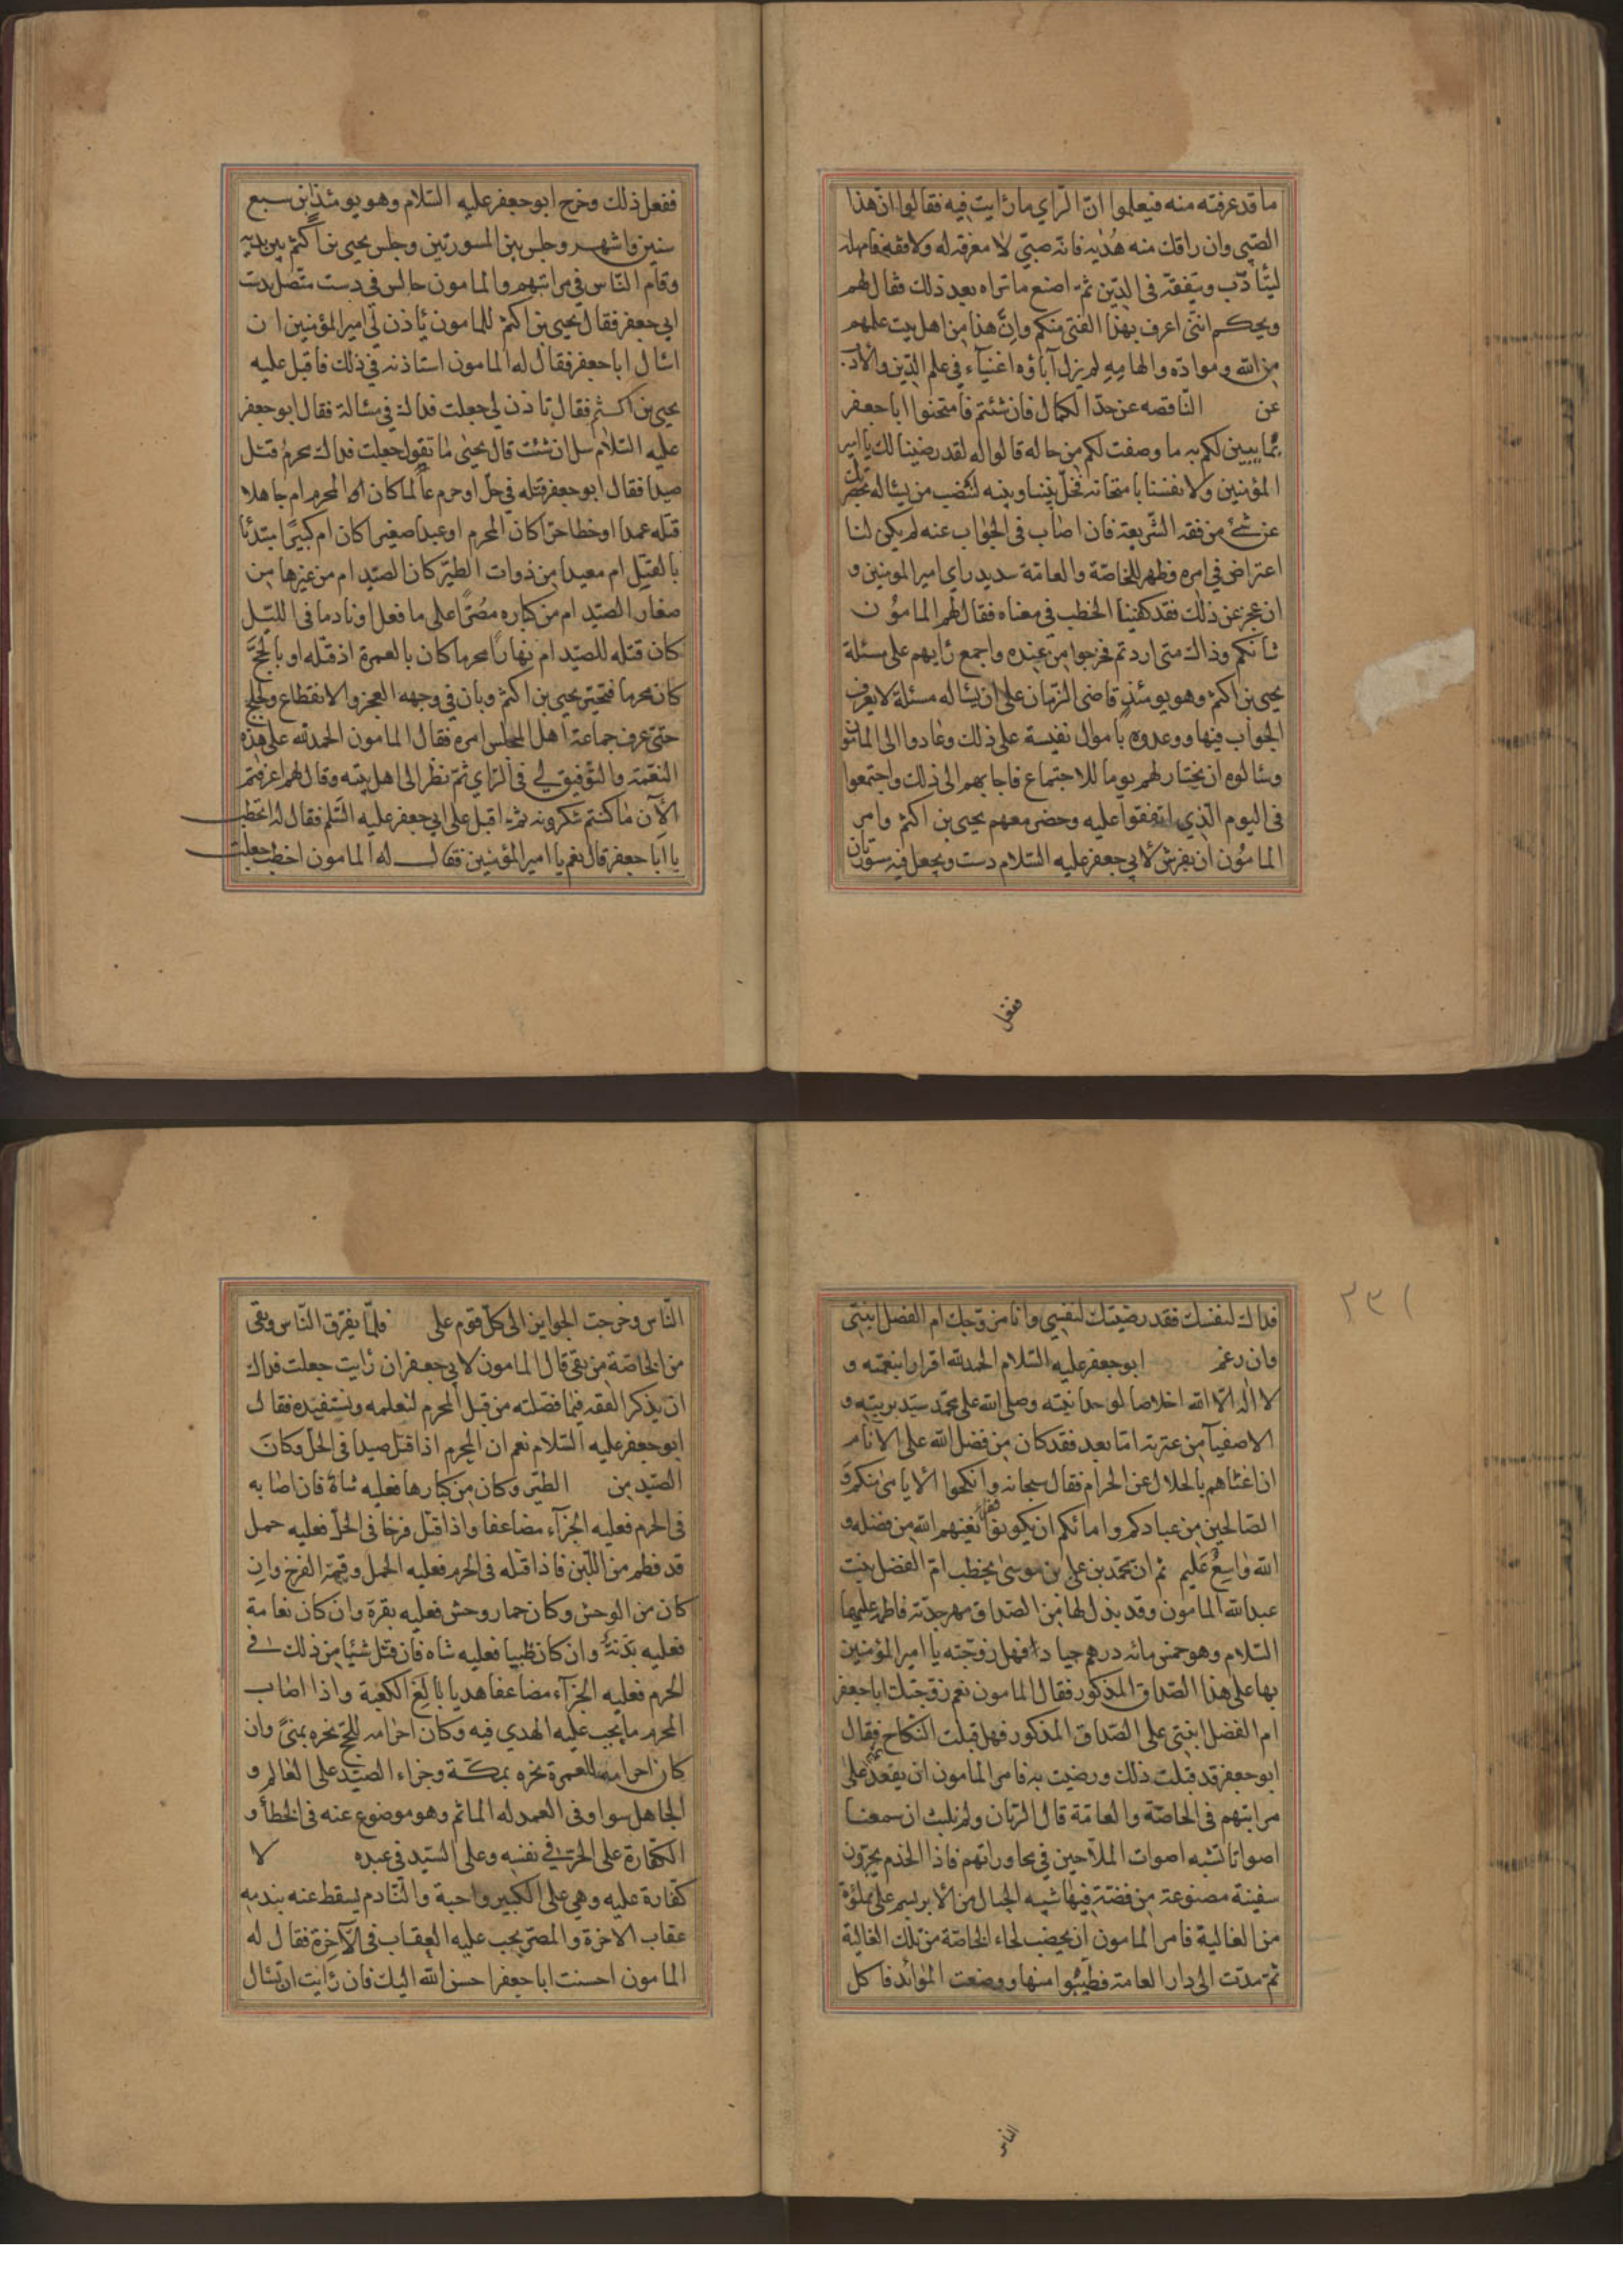 ما قد عرفته منه فيعلموا انّ الرّاي ما رايت فيه فقالوا انّ هذا
الصّبي وان راقك منه هُدْيه فانّه صبيّ لا معرفة له ولا فقه فامهله
ليتادّب ويتفقّه فى الدّين ثمّ اصنع ما تراه بعد ذلك فقال لهم
ويحكم انّنى اعرف بهذا الفتى منكم وانّ هذا من اهل بيت علمهم
من الله وموادّه والهامه لم يزل آباؤه اغنياء فى علم الدّين والأدب
عن الناقصه عن حدّ الكمال فان شئتم فامتحنوا ابا جعفر
بما يبين لكم به ما وصفت لكم من حاله قالوا له لقد رضينا لك يا امير
المؤمنين ولانفسنا بامتحانه فخلّ بيننا وبينه لننصب من يساله بحضرتك
عن شئ من فقه الشّريعة فان اصاب فى الجواب عنه لم يكن لنا
اعتراض فى امره وظهر للخاصّة والعامّة سديد راى امير المومنين و
ان عجز عن ذلك فقد كفينا الخطب فى معناه فقال لهم المامُون
شانكم وذاك متى اردتم فخرجوا من عنده واجمع رايهم على مسئلة
يحيى بن اكثم وهو يومئذ قاضى الزّمان على ان يساله مسئلة لا يعرف
الجواب فيها ووعدوه باموال نفيسة على ذلك وعادوا الى المامون
وسالوه ان يختار لهم يوما للاجتماع فاجابهم الى ذلك واجتمعوا
فى اليوم الّذي اتفقوا عليه وحضر معهم يحيى بن اكثم وامر
المامُون ان يفرش لابي جعفر عليه السّلام دست ويجعل فيه مسورتان
ففعل
ففعل ذلك وخرج ابو جعفر عليه السّلام وهو يومئذ ابن سبع
سنين واشهر وجلس بين المسورتين وجلس يحيى بن اكثم بين يديه
وقام النّاس فى مراتبهم والمامون جالس فى دست متّصل بدست
ابي جعفر فقال يحيى بن اكثم للمامون ياذن لي امير المؤمنين ان
اسال ابا جعفر فقال له المامون استاذنه في ذلك فاقبل عليه
يحيى بن اكثم فقال تاذن لي جعلت فداك في مسالة فقال ابو جعفر
عليه السّلام سل ان شئت قال يحيى ما تقول جعلت فداك محرم قتل
صيدا فقال ابو جعفر قتله في حل او حرم عالما كان المحرم ام جاهلا
قتله عمدا او خطا حرّا كان المحرم او عبدا صغيرا كان ام كبيرًا مبتدئا
بالقتل ام معيدا من ذوات الطير كان الصّيد ام من غيرها من
صغار الصّيد ام من كباره مصرّا على ما فعل او نادما فى اللّيل
كان قتله للصّيد ام نهارًا محرما كان بالعمرة اذ قتله او بالحجّ
كان محرما فتحيّر يحيى بن اكثم وبان في وجهه العجز والانقطاع ولجلج
حتى عرف جماعة اهل المجلس امره فقال المامون الحمد لله على هذه
النّعمة والتّوفيق لي فى الرّاي ثمّ نظر الى اهل بيته وقال لهم اعرفتم
الآن ما كنتم تنكرونه ثمّ اقبل على ابي جعفر عليه السّلم فقال له اتخطب
يا ابا جعفر قال نعم يا امير المؤمنين فقال له المامون اخطب جعلت
٢٣١
فداك لنفسك فقد رضيتك لنفسي وانا مزوّجك ام الفضل ابنتى
وان رغم ابو جعفر عليه السّلام الحمد لله اقرارا بنعمته و
لا اله الّا الله اخلاصا لوحدانيته وصلى الله على محمّد سيّد بريته و
الاصفيآ من عترته امّا بعد فقد كان من فضل الله على الانام
ان اغناهم بالحلال عن الحرام فقال سبحانه وانكحوا الأيامى منكم و
الصّالحين من عبادكم وامائكم ان يكونوا فقراء يغنيهم الله من فضله و
الله واسِعٌ عَليم ثم ان محمّد بن على بن موسى يخطب امّ الفضل بنت
عبد الله المامون وقد بذل لها من الصّداق مهر جدّته فاطمه عليها
السّلام وهو خمس مائه درهم جيادا فهل زوّجته يا امير المؤمنين
بها على هذا الصّداق المذكور فقال المامون نعم زوّجتك ابا جعفر
ام الفضل ابنتى على الصّداق المذكور فهل قبلت النّكاح فقال
ابو جعفر قد قبلت ذلك ورضيت به فامر المامون ان يقعد على
مراتبهم فى الخاصّة والعامّة قال الريّان ولم نلبث ان سمعنا
اصواتا تشبه اصوات الملّاحين في محاوراتهم فاذا الخدم يجرّون
سفينة مصنوعة من فضّة فيها شبه الحبال من الابريسم على مملوّة
من الغالية فامر المامون ان يخضب لحاء الخاصّة من تلك الغالية
ثمّ مدّت الى دار العامة فطيّبوا منها ووضعت الموائد فاكل
الناس
النّاس وخرجت الجوايز الى كل قوم على فلمّا تفرّق النّاس وبقى
من الخاصّة من بقى قال المامون لابي جعفر ان رايت جعلت فداك
ان يذكر الفقه فيما فصّلته من قبل المحرم لنعلمه ونستفيده فقال
ابو جعفر عليه السّلام نعم ان المحرم اذا قتل صيدا فى الحل وكان
الصّيد من الطيّر وكان من كبارها فعليه شاة فان اصابه
فى الحرم فعليه الجزآء مضاعفا واذا قتل فرخا فى الحلّ فعليه حمل
قد فطم من اللّبن فاذا قتله فى الحرم فعليه الحمل وقيمة الفرخ وان
كان من الوحش وكان حمار وحش فعليه بقرة وان كان نعامة
فعليه بَدَنة وان كان ظبيا فعليه شاه فان قتل شيئا من ذلك فى
الحرم فعليه الجزآء مضاعفا هديا بالغ الكعبة واذا اصاب
المحرم ما يجب عليه الهدي فيه وكان احرامه للحج نحره بمنىً وان
كان احرامه للعمرة نحره بمكّة وجزاء الصّيد على العالم و
الجاهل سوا وفى العمد له الماثم وهو موضوع عنه فى الخطأ و
الكفّارة على الحرّ في نفسه وعلى السّيد فى عبده لا
كفّارة عليه وهي على الكبير واجبة والنّادم يسقط عنه بندمه
عقاب الاخرة والمصرّ يجب عليه العقاب فى الآخرة فقال له
المامون احسنت ابا جعفر احسن الله اليك فان رايت ان تسال